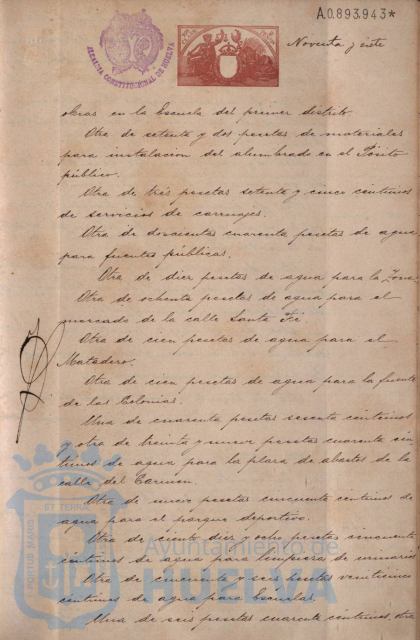 A.0.893.943*
ALCALDIA CONSTITUCIONAL DE HUELVA
Noventa y siete
obras en la Escuela del primer distrito.
Otra de setenta y dos pesetas de materiales
para instalacion del alumbrado en el Pósito
público.
Otra de tres pesetas setenta y cinco centimos
de servicios de carruajes.
Otra de doscientas cuarenta pesetas de agua
para fuentes públicas.
Otra de diez pesetas de agua para la
Otra de ochenta pesetas de agua para el
mercado de la calle Santa Fé.
Otra de cien pesetas de agua para el
Matadero.
Otra de cien pesetas de agua para la fuente
de las Colonias.
Una de cuarenta pesetas sesenta centimos
y otra de treinta y nueve pesetas cuarenta cen
timos de agua para la plaza de abastos de la
calle del Carmen.
Otra de nueve pesetas cincuenta centimos de
agua para el parque deportivo.
Otra de ciento diez y ocho pesetas cincuenta
centimos de agua para limpieza de urinarios
Otra de cincuenta y seis pesetas veinticinco
centimos de agua para Escuelas.
Una de seis pesetas cuarenta centimos, otra
PORTUS MARIS ET TERRAE
Ayuntamiento de
HUELVA